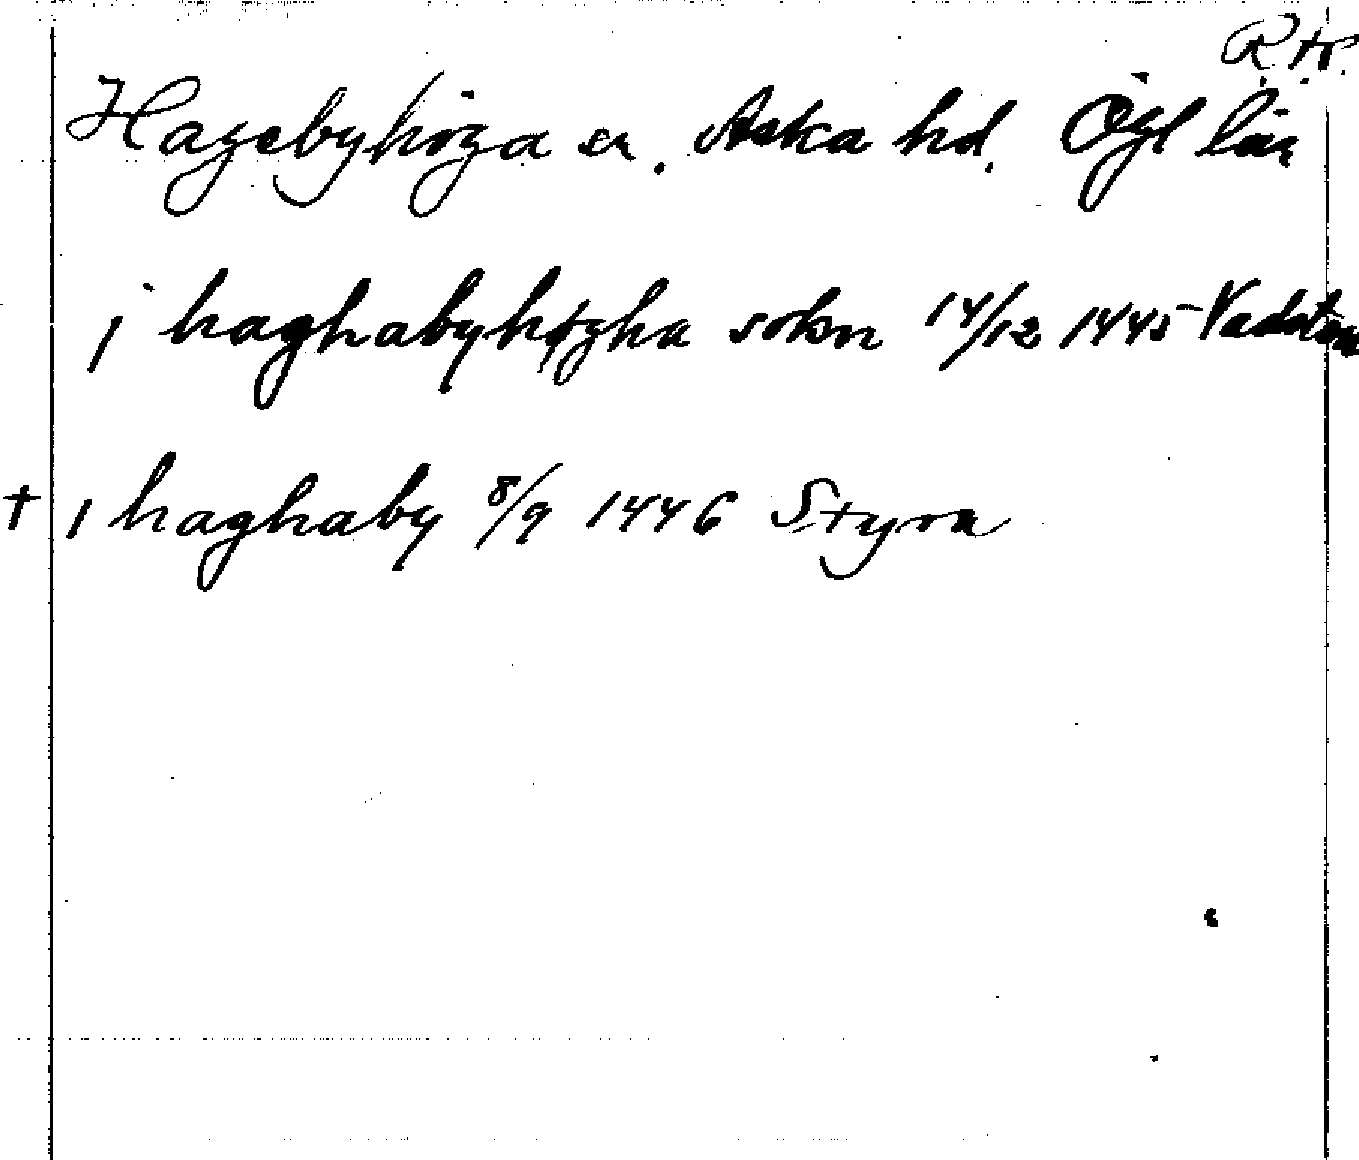 R.tr.
Hagebyhöga sn. Aska hd. Ögl län
j haghabyhøgha sokn 14/12 1445 Vadstena
† i haghaby 8/9 1446 Styra